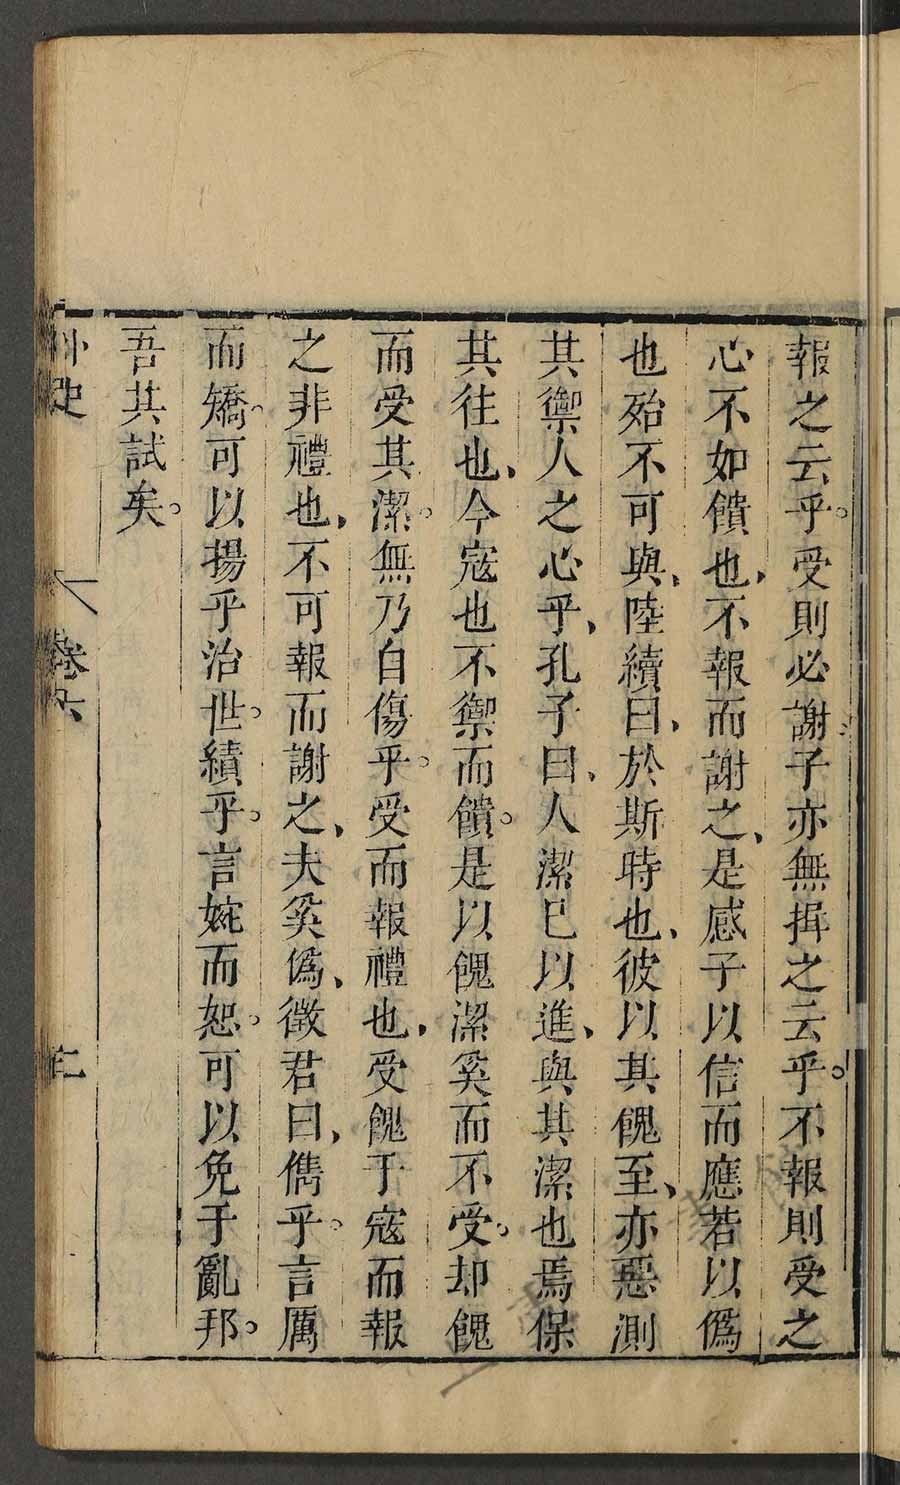 報之云乎。受則必謝子亦無揖之云乎。不報則受之
心不如饋也、不報而謝之、是感子以信而應若以僞
也殆不可與、陸續曰、於斯時也、彼以其餽至、亦惡測
其禦人之心乎、孔子曰、人潔巳以進、與其潔也焉保
其往也、今寇也不禦而饋。是以餽潔奚而不受。却餽
而受其潔。無乃自傷乎。受而報禮也、受餽于寇而報
之非禮也、不可報而謝之、夫奚僞、徵君曰、儁乎。言厲
而矯。可以揚乎治世。績乎。言婉而恕。可以免于亂邦。
吾其試矣。
外史
卷六
七